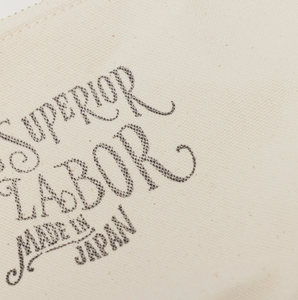 SUPERIOR
LABOR
MADE IN
JAPAN